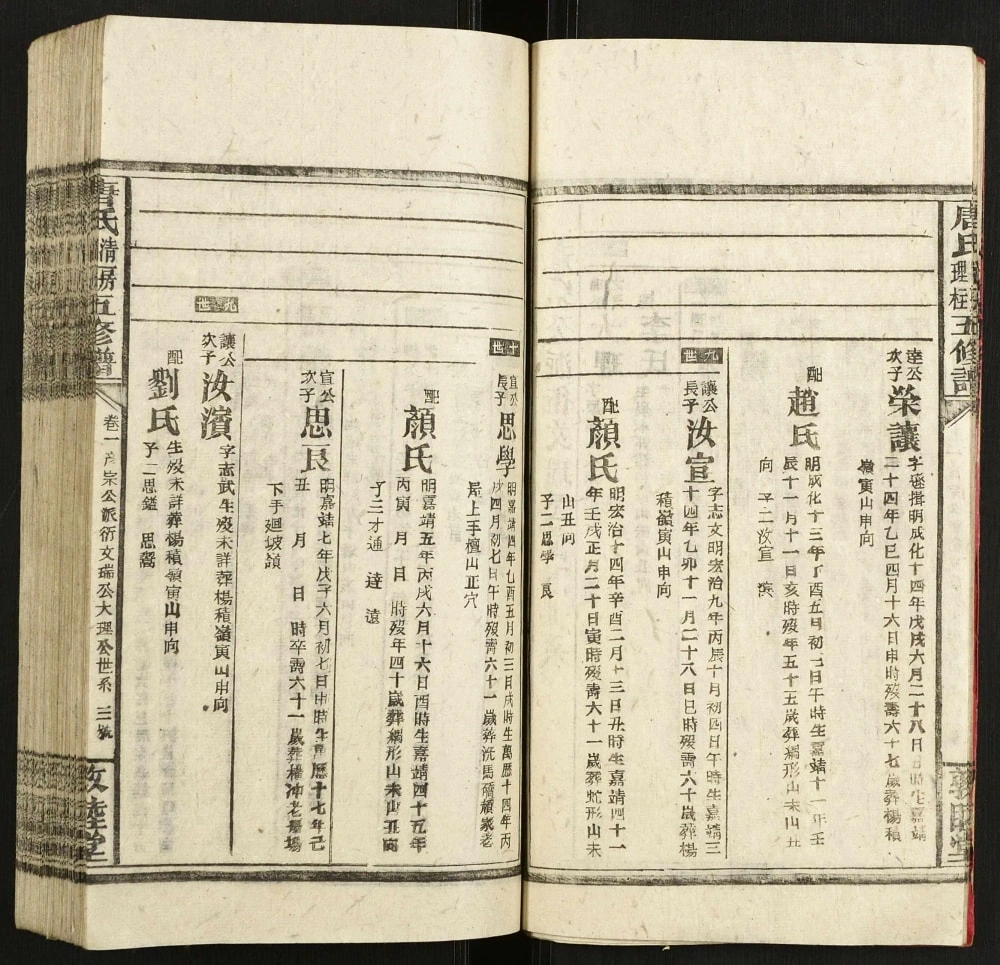 唐氏
理柱五修譜
達公
次子
榮讓
字 明成化十四年戊戌六月二十八日 時生嘉靖
二十四年乙巳四月十六日申時歿壽六十七歲葬楊積
嶺寅山申向
配
趙氏
明成化十三年丁酉五月初二日午時生嘉靖十一年壬
辰十一月十一日亥時歿年五十五歲葬 形山未山丑
向 子二汝宣 濱
九世
讓公
長子
汝宣
字志文明宏治九年丙辰十月初四日午時生嘉靖三
十四年乙卯十一月二十八日巳時歿壽六十歲葬楊
積嶺寅山申向
配
顏氏
明宏治十四年辛酉二月十三日丑時生嘉靖四十一
年壬戌正月二十日寅時歿壽六十一歲葬蛇形山未
山丑向
子二思學 良
敦睦堂
十世
宣公
長子
思學
明嘉靖四年乙酉五月初三日戌時生萬歷十四年丙
戌四月初七日午時歿壽六十一歲葬洗馬 顏家老
屋上手檀山正穴
配
顏氏
明嘉靖五年丙戌六月十六日酉時生嘉靖四十五年
丙寅 月 日 時歿年四十歲葬 形山未山丑向
子三才通 達 遠
宣公
次子
思良
明嘉靖七年戊子六月初七日申時生萬歷十七年己
丑 月 日 時卒壽六十一歲葬 冲老屋場
下手廻坡嶺
九世
讓公
次子
汝濱
字志武生歿未詳葬楊積嶺寅山申向
配
劉氏
生歿未詳葬楊積嶺寅山申向
子二思鎰 思鸞
唐氏清房五修譜
卷一 宗公派衍文瑞公大理公世系 三
敦睦堂